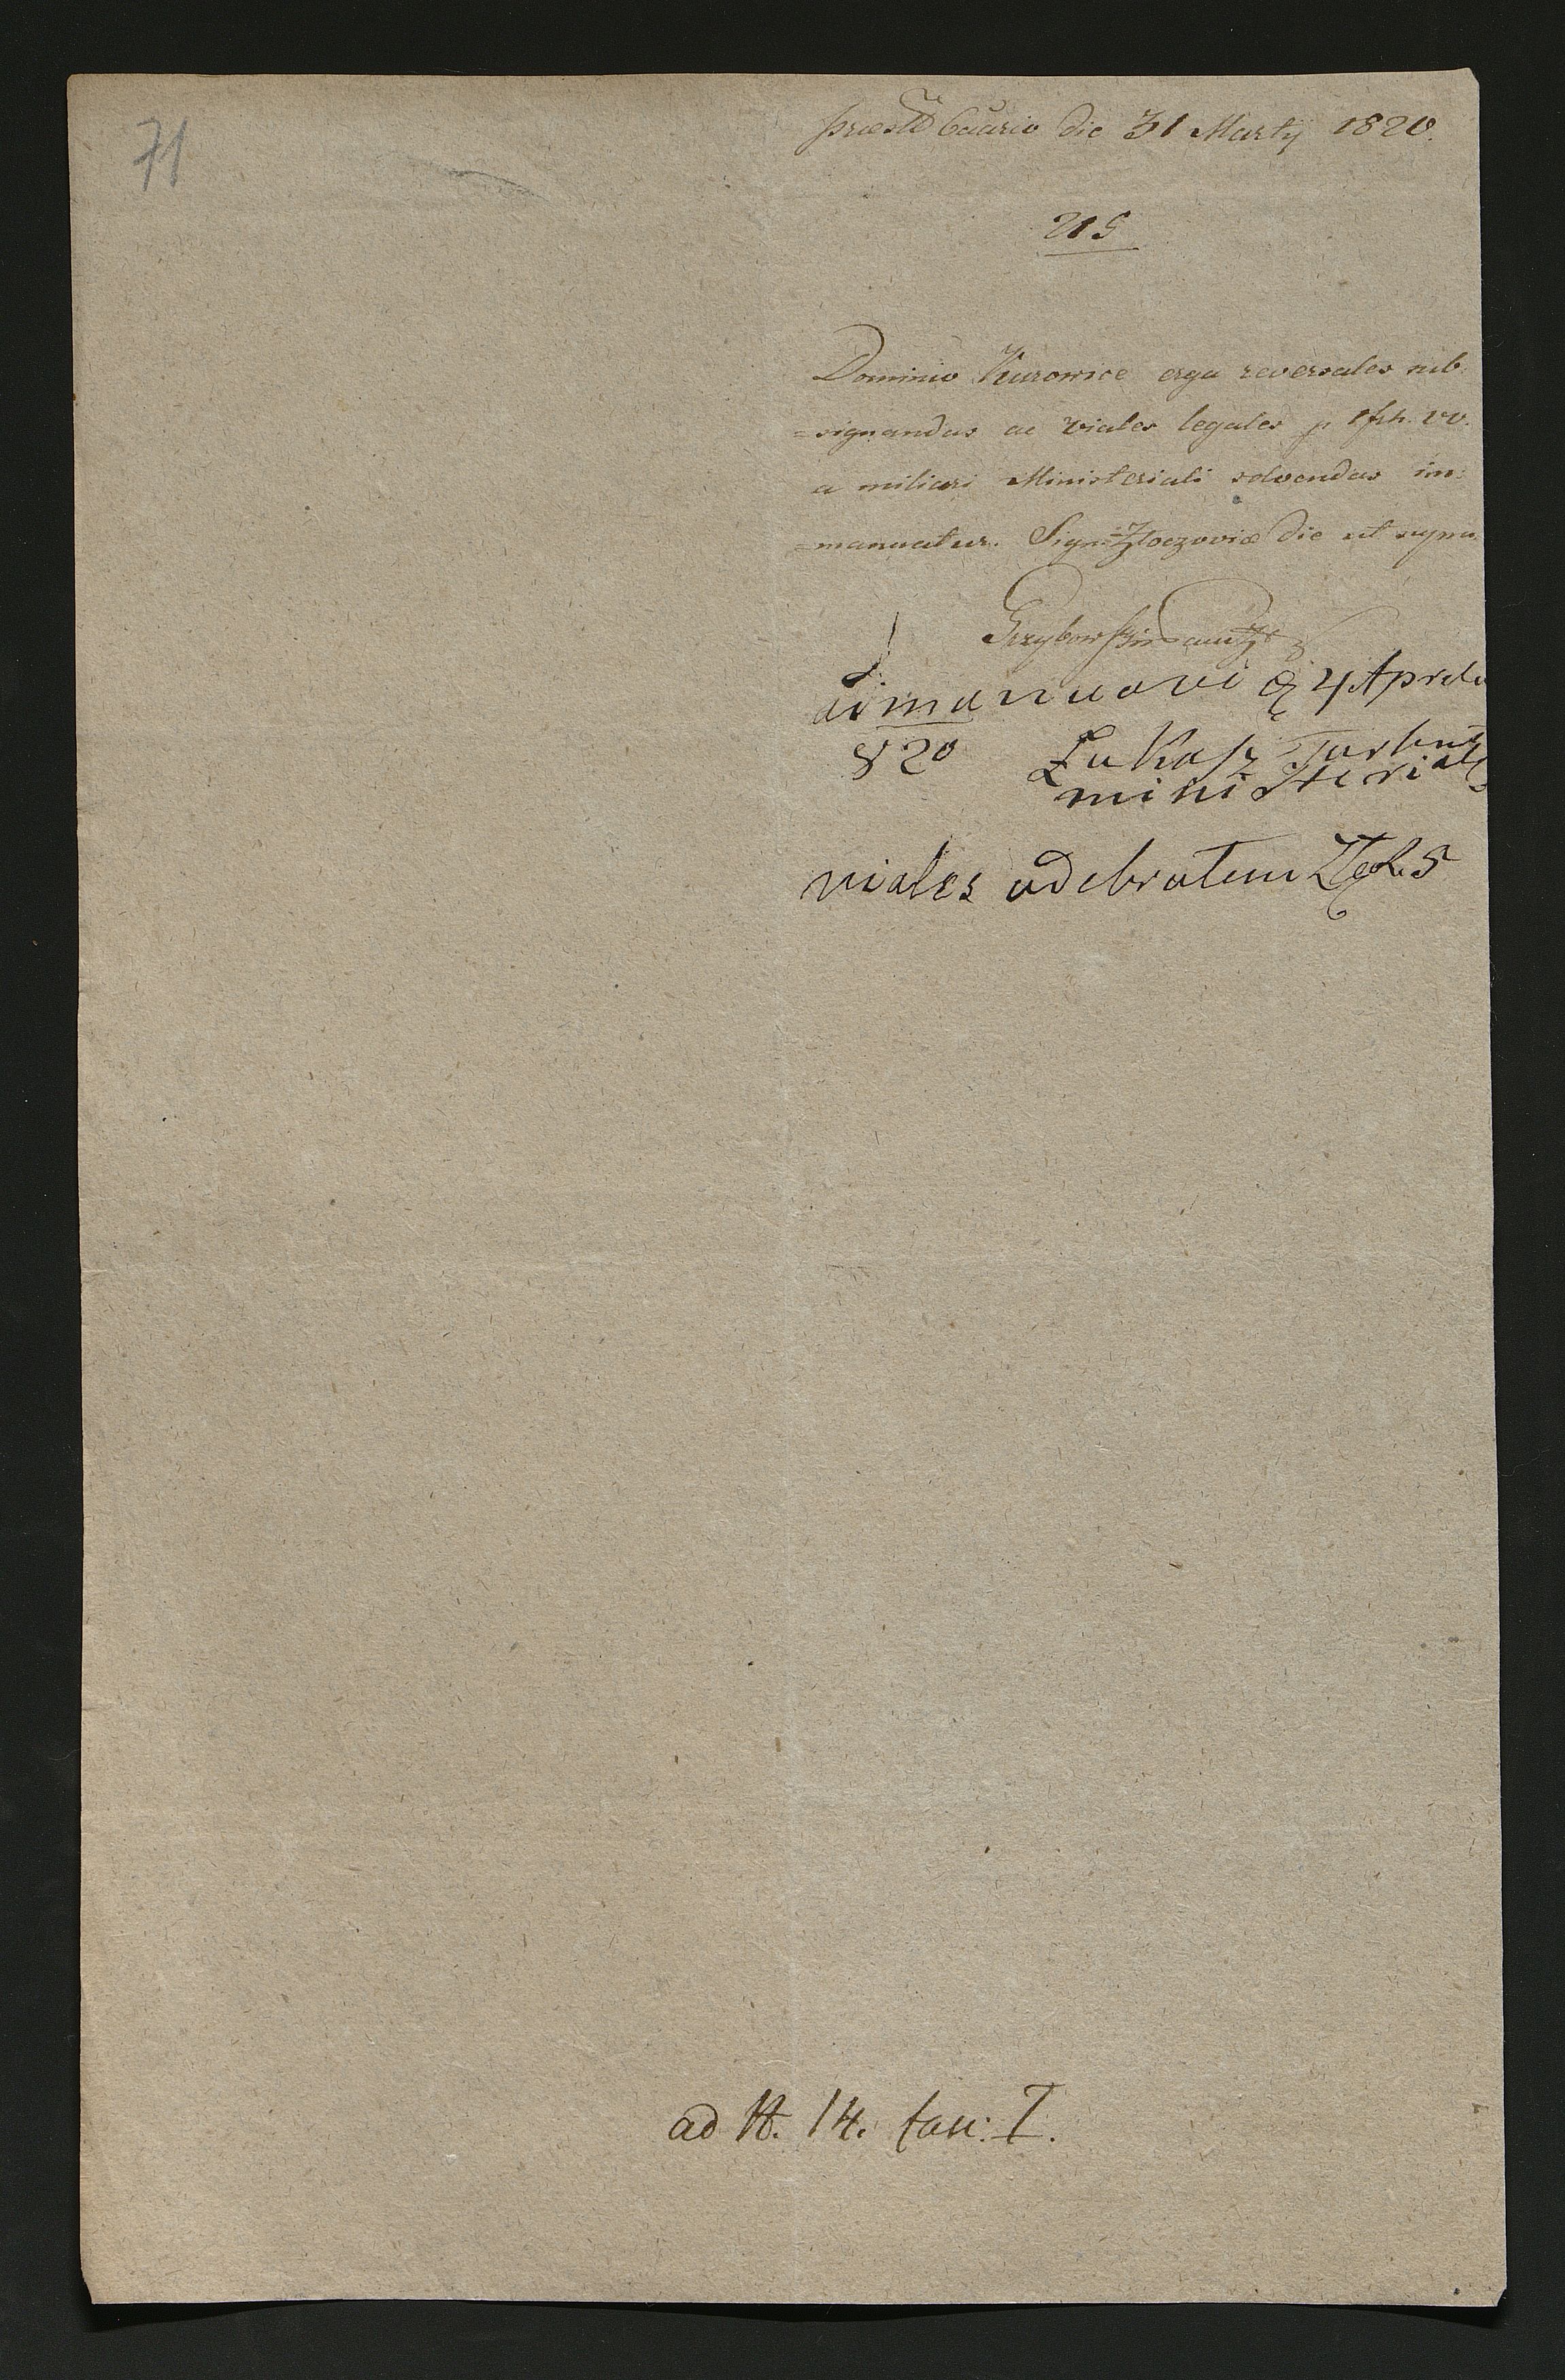 71
præst Ccario die 31 Martÿ 1820.
215
Dominio Kurowice erga reversales sub
=signandas ac viales legales p 1 frh. vv.
a miliari Ministeriali solvendas im:
=manuatur. Sign Złoczoviæ die ut supra
Grzybowski
admanuavi d 4 Aprila
820 Łukasz
ministerial
viales odebrałem Zł 5
ad N. 14. fasc: I.